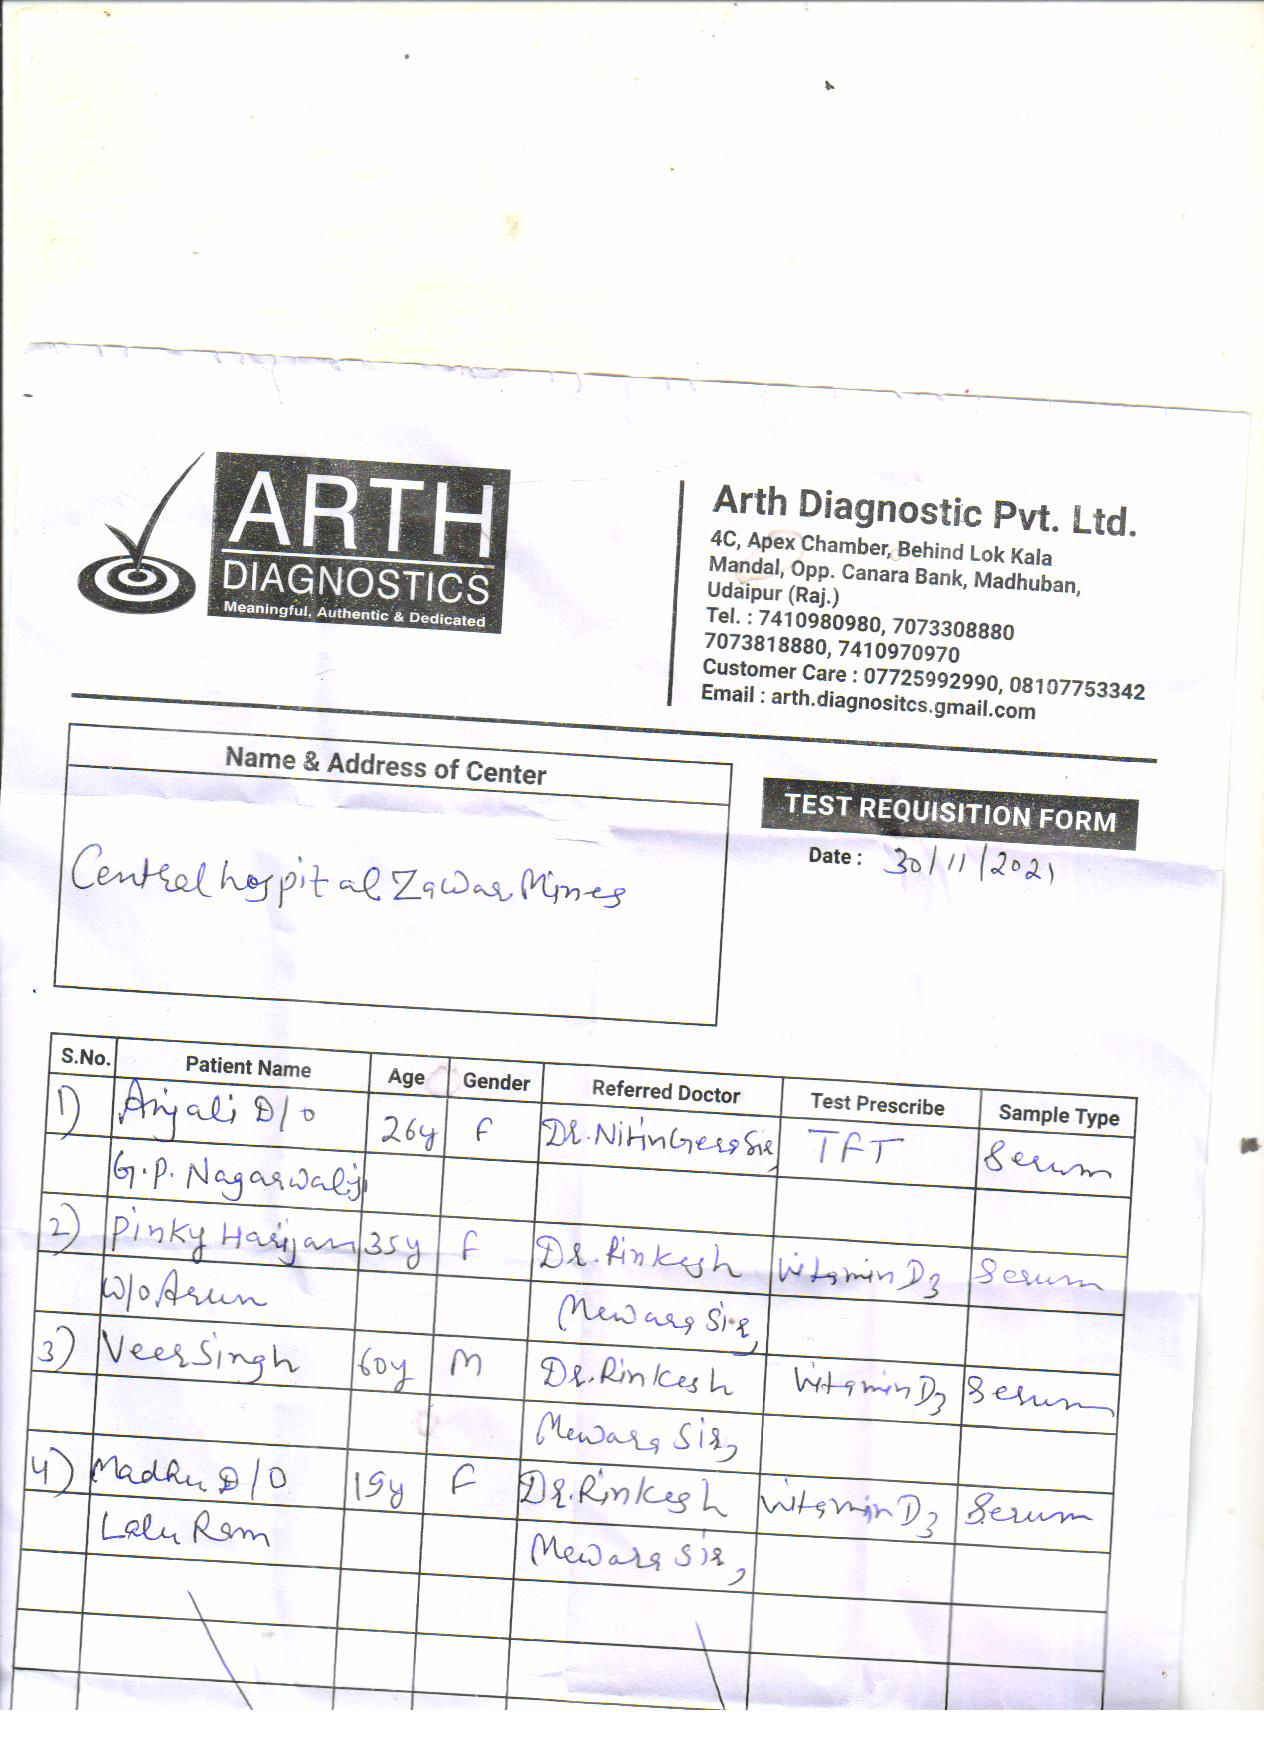 ARTH
DIAGNOSTICS
Meaningful, Authentic & Dedicated
Arth Diagnostic Pvt. Ltd.
4C, Apex Chamber, Behind Lok Kala
Mandal, Opp. Canara Bank, Madhuban,
Udaipur (Raj.)
Tel. : 7410980980, 7073308880
7073818880, 7410970970
Customer Care : 07725992990, 08107753342
Email : arth.diagnositcs.gmail.com
Name & Address of Center
Central hospital Zawar Mines
TEST REQUISITION FORM
Date : 30/11/2021
S.No. Patient Name Age Gender Referred Doctor Test Prescribe Sample Type
1) Anjali D/o 26y F Dr. Nitin Sir, TFT Serum
G.P. Nagarwalji
2) Pinky Harijan 35y F Dr. Rinkesh Vitamin D3 Serum
W/o Arun Mewara Sir,
3) Veer Singh 60y M Dr. Rinkesh Vitamin D3 Serum
Mewara Sir,
4) Madhu D/O 19y F Dr. Rinkesh Vitamin D3 Serum
Lalu Ram Mewara Sir,